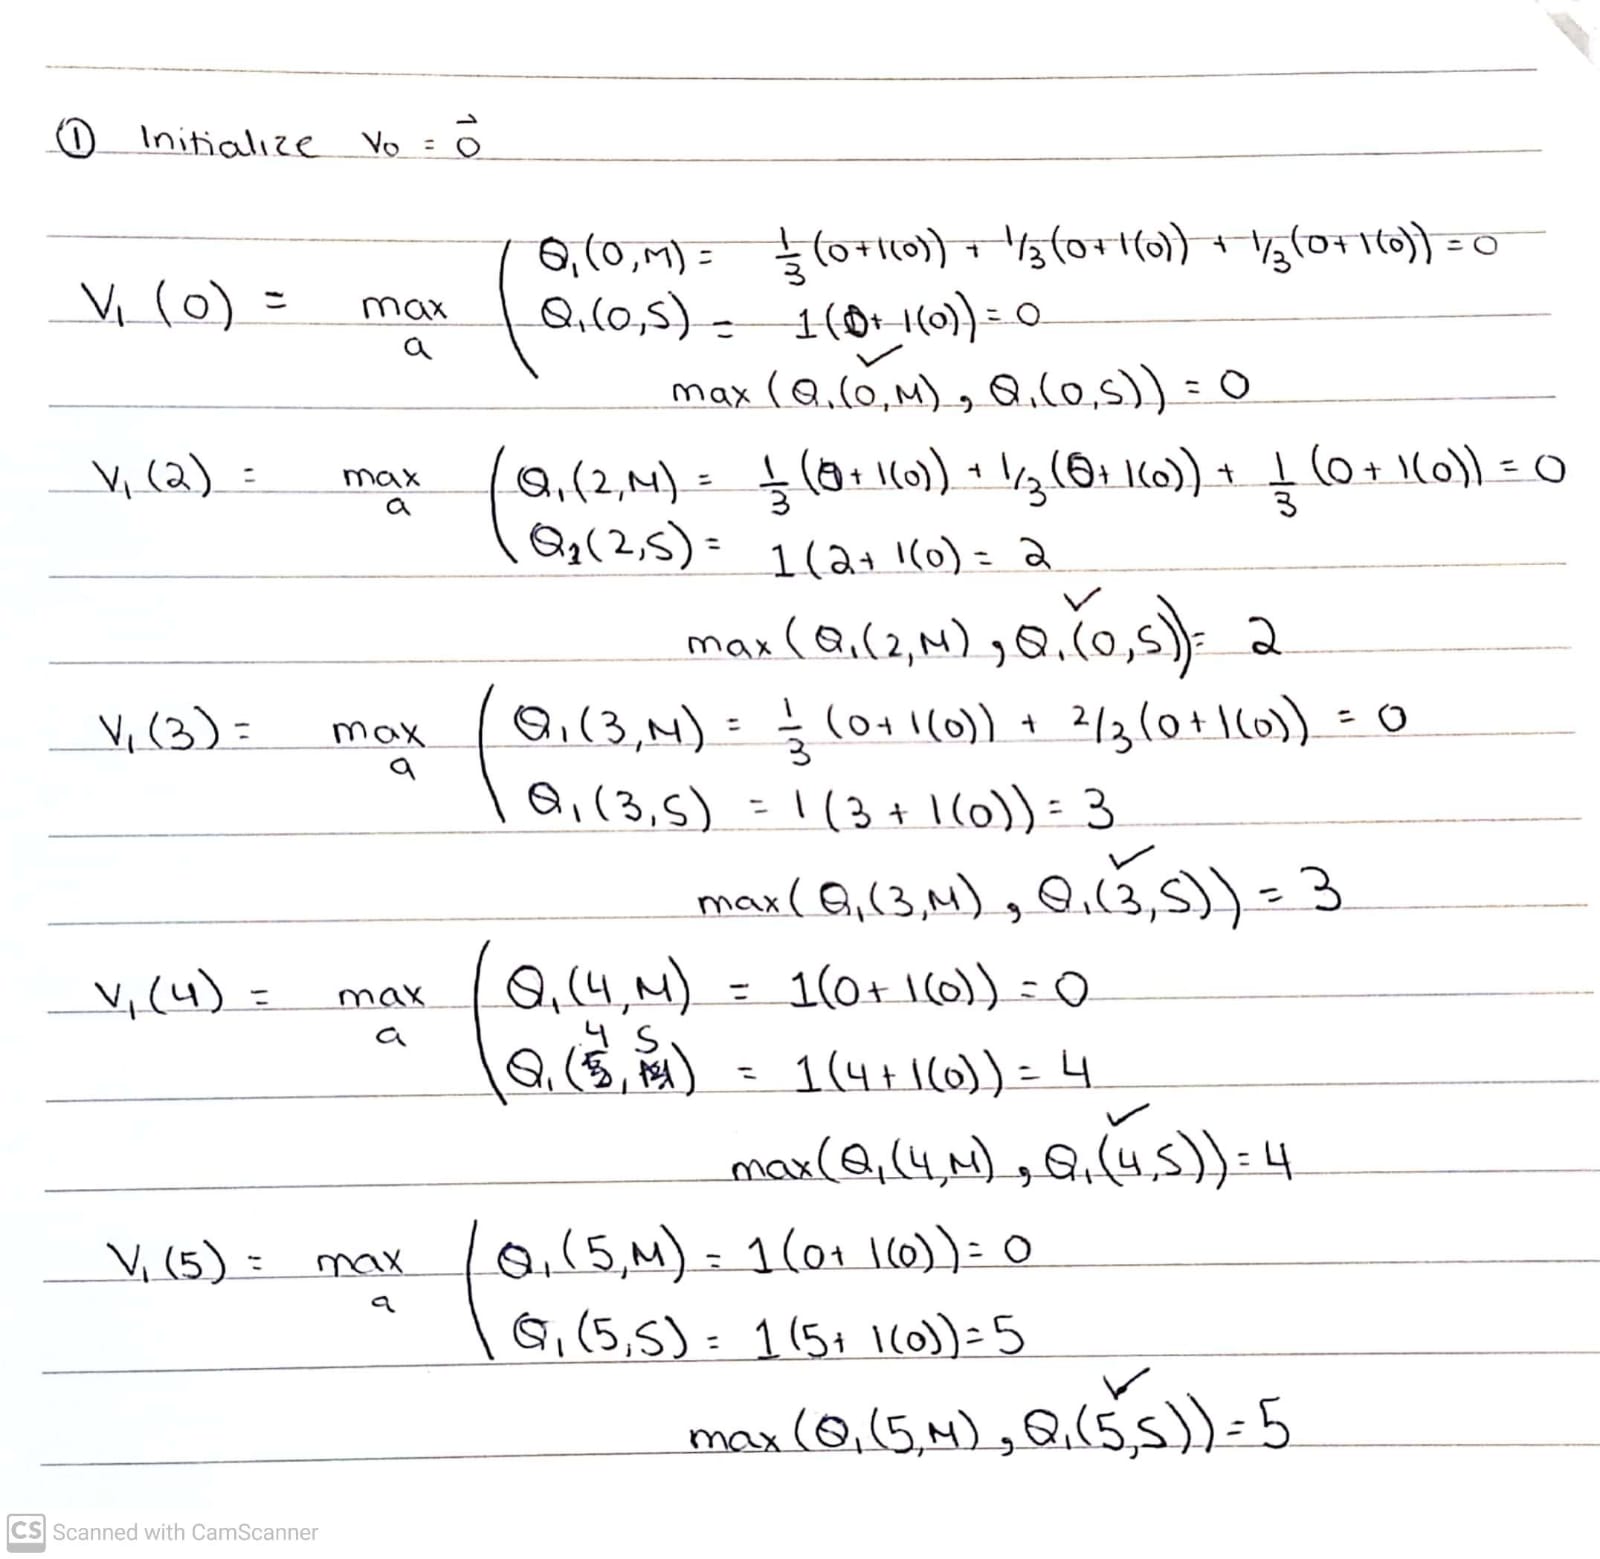 ① Initialize V₀ = 0⃗
Q₁(0,M) = 1/3 (0+1(0)) + 1/3(0+1(0)) + 1/3(0+1(0)) = 0
V₁(0) = max a Q₁(0,S) = 1(0+1(0)) = 0
max (Q₁(0,M) ✓, Q₁(0,S)) = 0
V₁(2) = max a (Q₁(2,M) = 1/3 (0+1(0)) + 1/3(0+1(0)) + 1/3 (0+1(0)) = 0
Q₁(2,S) = 1(2+1(0) = 2
max (Q₁(2,M), Q₁(0,S) ✓) = 2
V₁(3) = max a (Q₁(3,M) = 1/3 (0+1(0)) + 2/3(0+1(0)) = 0
Q₁(3,S) = 1(3+1(0)) = 3
max (Q₁(3,M), Q₁(3,S) ✓) = 3
V₁(4) = max a (Q₁(4,M) = 1(0+1(0)) = 0
Q₁(4,S) = 1(4+1(0)) = 4
max(Q₁(4,M), Q₁(4,S) ✓) = 4
V₁(5) = max a (Q₁(5,M) = 1(0+1(0)) = 0
Q₁(5,S) = 1(5+1(0)) = 5
max (Q₁(5,M), Q₁(5,S) ✓) = 5
CS Scanned with CamScanner